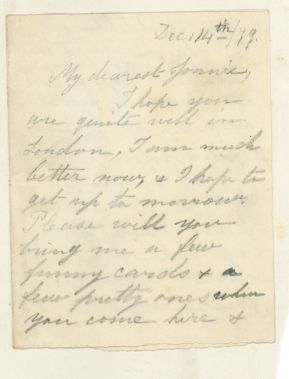 Dec. 14th/79.
My dearest Jonnie,
I hope you
are quite well in
London, I am much
better now, & I hope to
get up to morrow.
Please will you
bring me a few
funny cards & a
few pretty ones when
you come here &